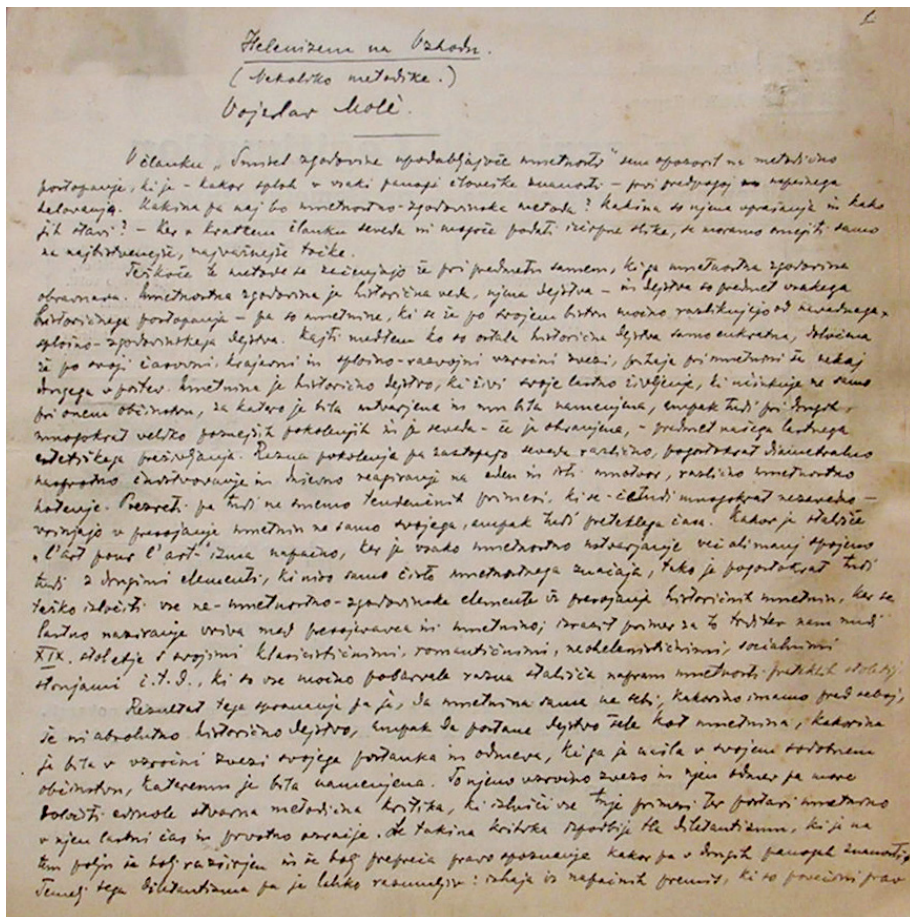 1.
Helenizem na Vzhodu.
(Nekoliko metodike.)
Vojeslav Molè.
V članku „Smisel zgodovine upodabljajoče umetnosti" sem opozoril na metodično
postopanje, ki je - kakor sploh v vsaki panogi človeške znanosti - prvi predpogoj uspešnega
delovanja. Kakšna pa naj bo umetnostno-zgodovinska metoda? Kakšna so njena vprašanja in kako
jih stavi? - Ker v kratkem članku seveda ni mogoče podati izčrpne slike, se moramo omejiti samo
na najbistvenejše, najvažnejše točke.
Težkoče te metode se začenjajo že pri predmetu samem, ki ga umetnostna zgodovina
obravnava. Umetnostna zgodovina je historična veda, njena dejstva - in dejstva so predmet vsakega
historičnega postopanja - pa so umetnine, ki se že po svojem bistvu močno razlikujejo od navadnega,
splošno-zgodovinskega dejstva. Kajti medtem ko so ostala historična dejstva samo enkratna, določena
že po svoji časovni, krajevni in splošno-razvojni vzročni zvezi, prihaja pri umetnini še nekaj
drugega v poštev. Umetnina je historično dejstvo, ki živi svoje lastno življenje, ki učinkuje ne samo
pri onem občinstvu, za katero je bila ustvarjena in mu bila namenjena, ampak tudi pri drugih,
mnogokrat veliko poznejših pokolenjih in je seveda - če je ohranjena, - predmet našega lastnega
estetiškega preživljanja. Razna pokolenja pa zastopajo seveda različno, pogostokrat diametralno
nasprotno čuvstvovanje in duševno reagiranje na eden in isti umotvor, različno umetnostno
hotenje. Prezreti pa tudi ne smemo tendenčnih primesi, ki se - četudi mnogokrat nezavedno -
vrinjajo v presojanje umetnin ne samo svojega, ampak tudi preteklega časa. Kakor je stališče
„l'art pour l'art"-izma napačno, ker je vsako umetnostno ustvarjanje več ali manj spojeno
tudi z drugimi elementi, ki niso samo čisto umetnostnega značaja, tako je pogostokrat tudi
težko izločiti vse ne-umetnostno-zgodovinske elemente iz presojanja historičnih umetnin, ker se
lastno naziranje vriva med presojevavca in umetnino; izrazit primer za to trditev nam nudi
XIX. stoletje s svojimi klasicističnimi, romantičnimi, neohelenističnimi, socialnimi
strujami i.t.d., ki so vse močno pobarvale razna stališča napram umetnosti preteklih stoletij.
Rezultat tega spoznanja pa je, da umetnina sama na sebi, kakoršno imamo pred seboj,
še ni absolutno historično dejstvo, ampak da postane dejstvo šele kot umetnina, kakoršna
je bila v vzročni zvezi svojega postanka in odmeva, ki ga je našla v svojem sodobnem
občinstvu, kateremu je bila namenjena. To njeno vzročno zvezo in njen odmev pa more
določiti edinole stvarna metodična kritika, ki izluči vse tuje primesi ter postavi umetnino
v njen lastni čas in prvotno ozračje. Le takšna kritika izpodbije tla diletantizmu, ki je na
tem polju še bolj razširjen in še bolj preprečа pravo spoznanje kakor pa v drugih panogah znanosti.
Temelj tega diletantizma pa je lahko razumljiv: izhaja iz napačnih premis, ki so povečini prav